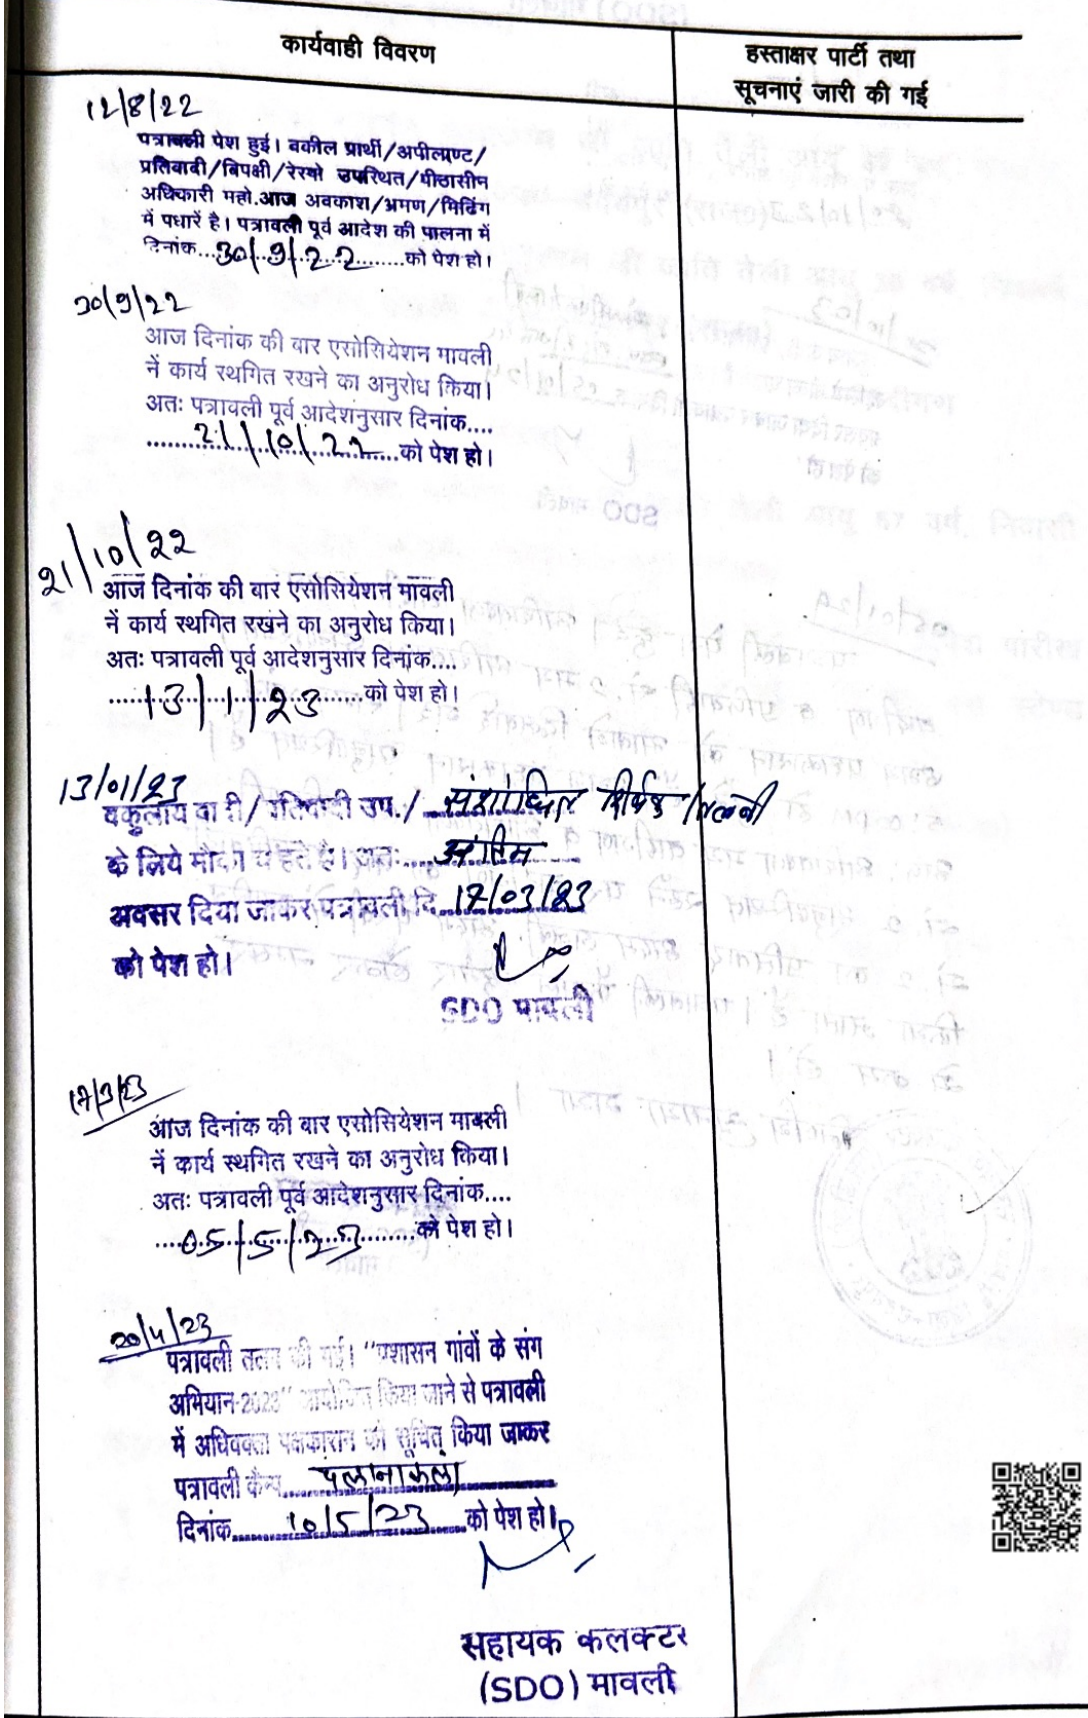 कार्यवाही विवरण
हस्ताक्षर पार्टी तथा
सूचनाएं जारी की गई
12/8/22
पत्रावली पेश हुई। वकील प्रार्थी/अपीलाण्ट/
प्रतिवादी/विपक्षी/रेस्पो उपस्थित/पीठासीन
अधिकारी महो.आज अवकाश/भ्रमण/मिटिंग
में पधारें है। पत्रावली पूर्व आदेश की पालना में
दिनांक...30/9/22........को पेश हो।
30/9/22
आज दिनांक की बार एसोसियेशन मावली
नें कार्य स्थगित रखने का अनुरोध किया।
अतः पत्रावली पूर्व आदेशनुसार दिनांक....
........21/10/22........को पेश हो।
21/10/22
आज दिनांक की बार एसोसियेशन मावली
नें कार्य स्थगित रखने का अनुरोध किया।
अतः पत्रावली पूर्व आदेशनुसार दिनांक....
.....13/1/23.......को पेश हो।
13/01/23
वकुलाय वादी/प्रतिवादी उप./ संशोधित शीर्षक /तलबी
के लिये मौका चाहते है। अतः....अंतिम
अवसर दिया जाकर पत्रावली दि.17/03/23
को पेश हो।
SDO मावली
17/3/23
आज दिनांक की बार एसोसियेशन मावली
नें कार्य स्थगित रखने का अनुरोध किया।
अतः पत्रावली पूर्व आदेशनुसार दिनांक....
...05/5/23........को पेश हो।
20/4/23
पत्रावली तलब की गई। "प्रशासन गांवों के संग
अभियान-2023" आयोजित किया जाने से पत्रावली
में अधिवक्ता पक्षकारान को सूचित किया जाकर
पत्रावली कैम्प....पलानाकला
दिनांक......10/5/23......को पेश हो।
सहायक कलक्टर
(SDO) मावली